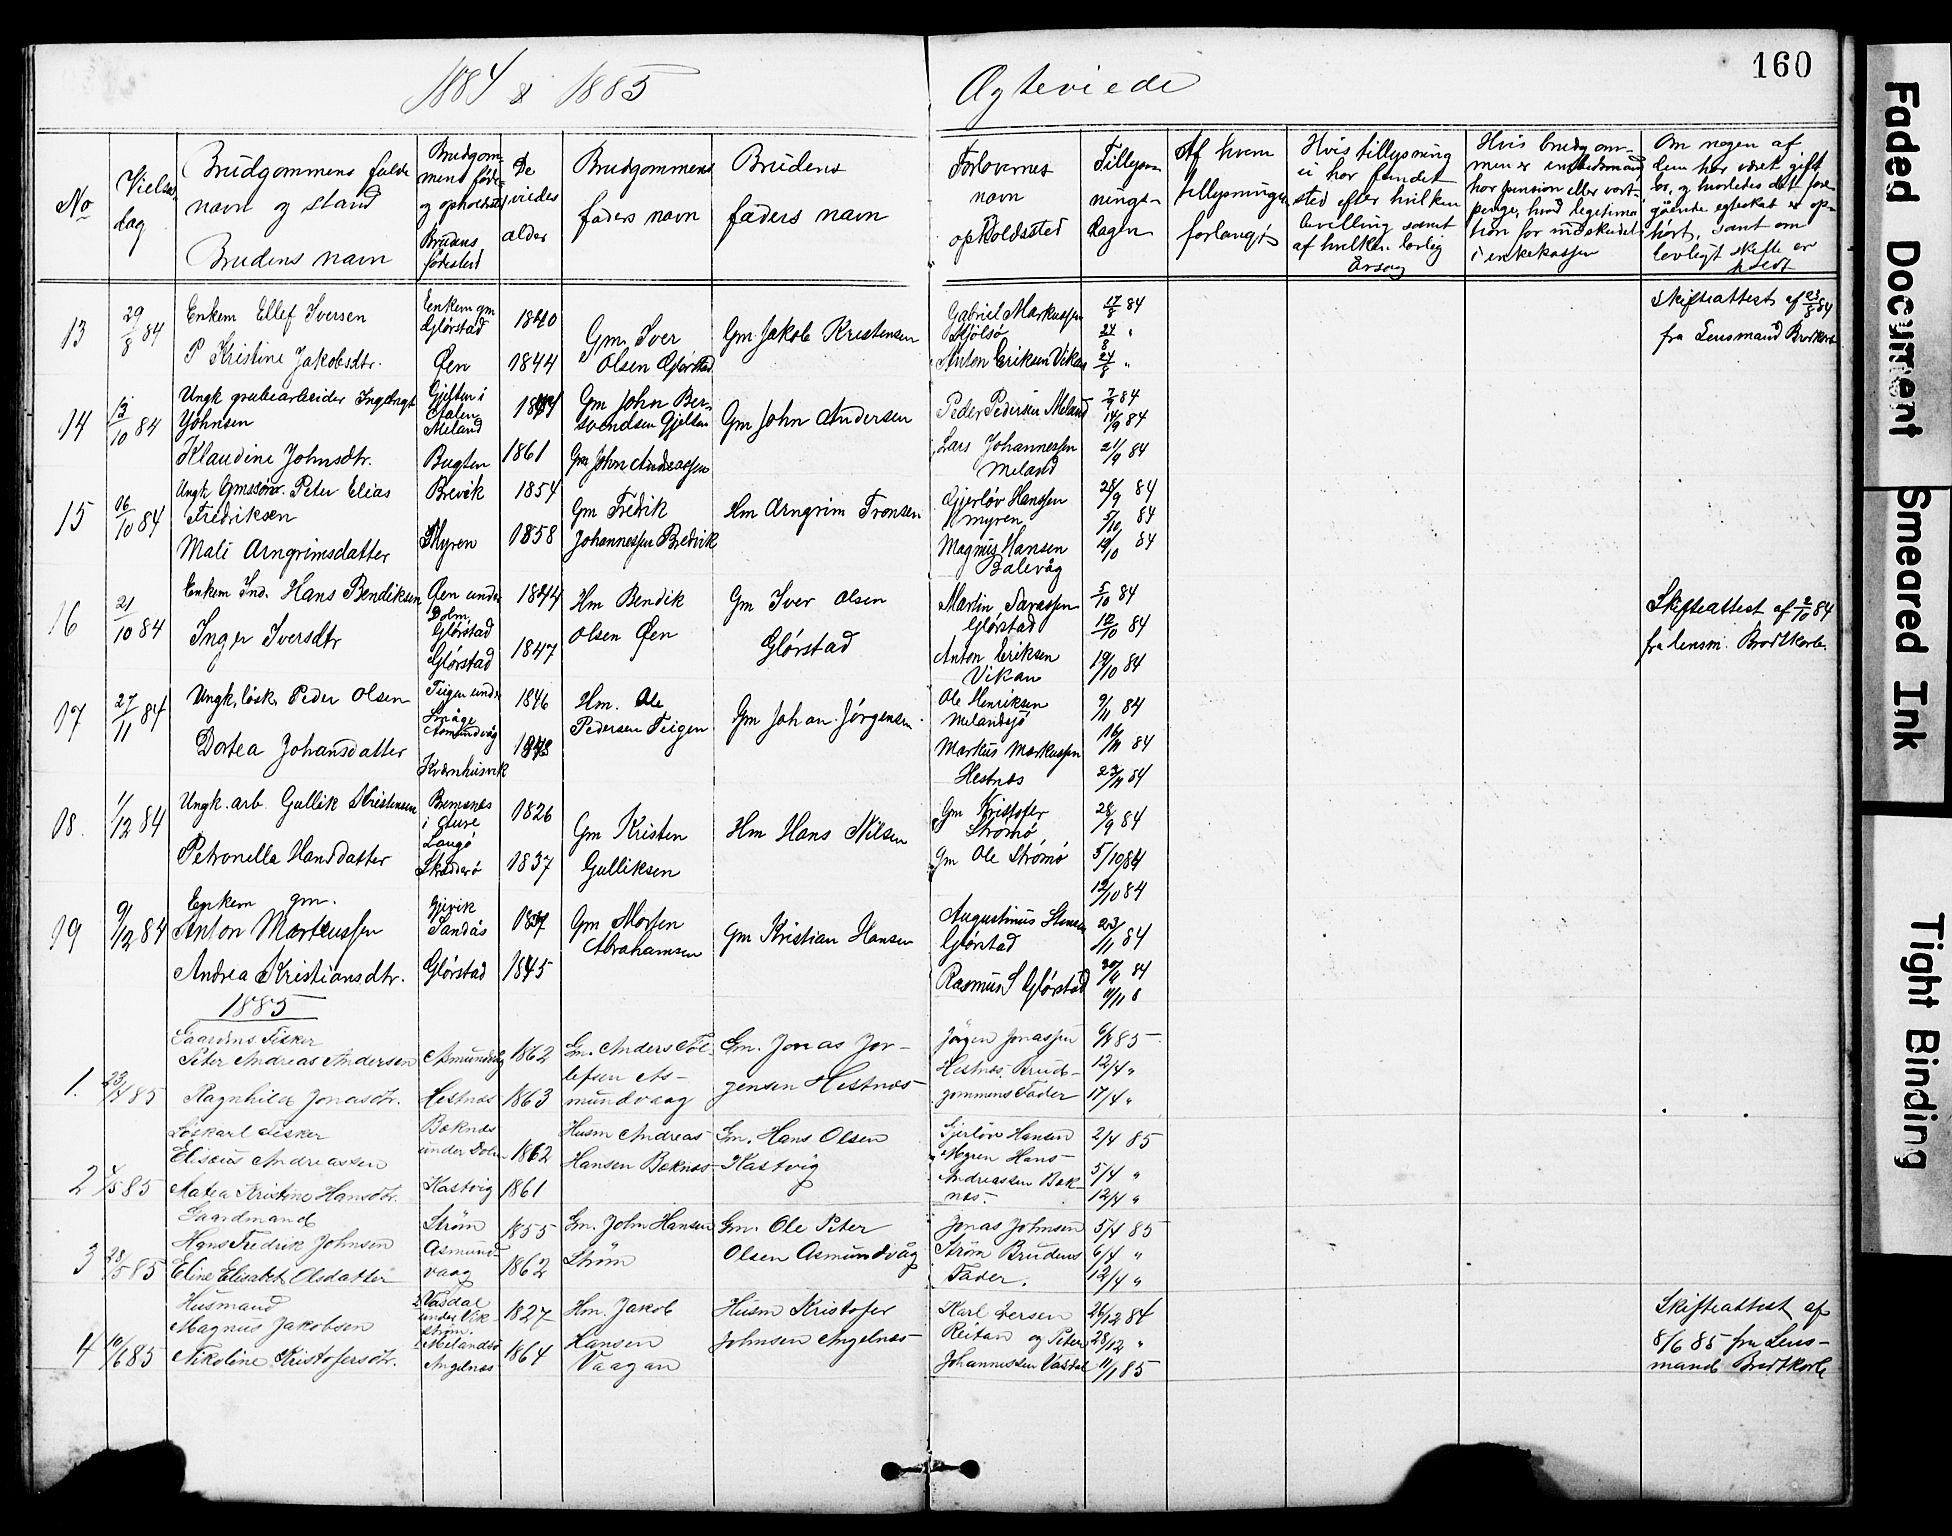 1884 & 1885
Ægteviede
160
No
Vielses
dag
Brudgommens fulde
navn og stand
Brudens navn
Brudgom-
mens føde-
og opholdssted
Brudens
fødested
De
viedes
alder
Brudgommens
faders navn
Brudens
faders navn
Forlovernes
navn
opholdssted
Tillys-
nings-
dagen
Af hvem
tillysningen
forlangt
Hvis tillysning
ei har fundet
sted efter hvilken
bevilling samt
af hvilken lovlig
Årsag
Hvis brudgom-
men er embedsmand
har pension eller vart-
penge, hvad legitima-
tion for indskudet
i enkekassen
Om nogen af
dem har været gift
før, og hvorledes det fore-
gående egteskab er op-
hørt, samt om
lovligt skifte er
holdt
13
29/8 84
Enkem Ellef Iversen
P Kristine Jakobsdtr.
Enkem gm
Glørstad
Øen
1840
1844
Gm. Iver
Olsen Glørstad
Gm Jakob Kristensen
Gabriel Markussen
Anton Eriksen Vikan
17/8 84
24/8 "
24/8 "
Skifteattest af 23/8 84
fra Lensmand Brodtkorb
14
13/10 84
Ungk grubearbeider Ingebrigt
Johnsen
Klaudine Johnsdtr.
Meland
Bugten
1861
Gm John Ber-
Gm John Andreassen
Gm John Andersen
Peder Pedersen Meland
Lars Johannessen
Meland
7/9 84
14/9 84
21/9 84
15
16/10 84
Ungk Gmssøn. Peter Elias
Fredriksen
Mali Arngrimsdatter
Brevik
Myren
1854
1858
Gm Fredik
Johannessen Bredvik
Hm Arngrim Tronsen
Gjerløv Hanssen
Myren
Magnus Hansen
Balevåg
28/9 84
5/10 84
12/10 84
16
21/10 84
Enkem Ind. Hans Bendiksen
Inger Iversdtr
Øen under
Dolm.
Glørstad
Glørstad
1844
1847
Hm Bendik
Olsen Øen
Gm Iver Olsen
Glørstad
Martin Tarassen
Glørstad
Anton Eriksen
Vikan
5/10 84
12/10 84
19/10 84
Skifteattest af 2/10 84
fra lensm. Brodtkorb.
17
27/11 84
Ungk. løsk. Peder Olsen
Dortea Johansdatter
Teigen under
Småge
Asmundvåg
Kvernhusvik
1846
1848
Hm. Ole
Pedersen Teigen
Gm Johan Jørgensen
Ole Henriksen
Melandsjø
Markus Markussen
Hestnes
9/11 84
16/11 84
23/11 84
18.
1/12 84
Ungk. arb. Gullik Kristensen
Petronella Hansdatter
Bremsnes
i Sture
Langø
Skodderø
1826
1837
Gm Kristen
Gulliksen
Hm Hans Nilsen
Gm Kristofer
Strømø
Gm Ole Strømø
28/9 84
5/10 84
12/10 84
19
9/12 84
Enkem gm.
Anton Martenssen
Andrea Kristiansdtr.
Gjevik
Sandås
Glørstad
1837
1845
Gm Morten
Abrahamsen
Gm Kristian Hansen
Augustinus Stensen
Glørstad
Rasmus S Glørstad
23/11 84
84
1885
1.
23/4 85
Gaardms Fisker
Peter Andreas Andersen
Ragnhild Jonasdtr.
Asmundvåg
Hestnæs
1862
1863
Gm. Anders Tol-
lefsen As-
mundvaag
Gm. Jonas Jør-
gensen Hestnæs
Jørgen Jonassen
Hestnæs. Brud-
gommens Fader
6/4 85
12/4 "
17/4 "
2
4/5 85
Løskarl Fisker
Eliseus Andreassen
Aatea Kristine Hansdtr.
Boknes
under Dolm
Kastvig
1862
1861
Husm Andreas
Hansen Boknes
Gm. Hans Olsen
Kastvig
Gjerløv Hansen
Myren Hans
Andreassen Bok-
nes.
2/4 85
5/4 "
12/4 "
3
28/5 85
Gaardmand
Hans Fredrik Johnsen
Eline Elisabet Olsdatter
Strøm
Asmund-
vaag
1855
1862
Gm. John Hansen
Strøm
Gm. Ole Peter
Olsen Asmundvåg
Jonas Johnsen
Strøm Brudens
Fader.
5/4 85
6/4 "
12/4 "
4
10/6 85
Husmand
Magnus Jakobsen
Nikoline Kristofersdtr.
Vasdal
under Vik-
strøm.
Melandsø
Angelnæs
1827
1864
Hm. Jakob
Hansen
Vaagan
Husm Kristofer
Johnsen Angelnæs
Karl Iversen
Reitan og Peter
Johannessen Vasdal
26/12 84
28/12 "
11/1 85
Skifteattest af
8/6 85 fra Lens-
mand Brodtkorb
Faded Document
Smeared Ink
Tight Binding